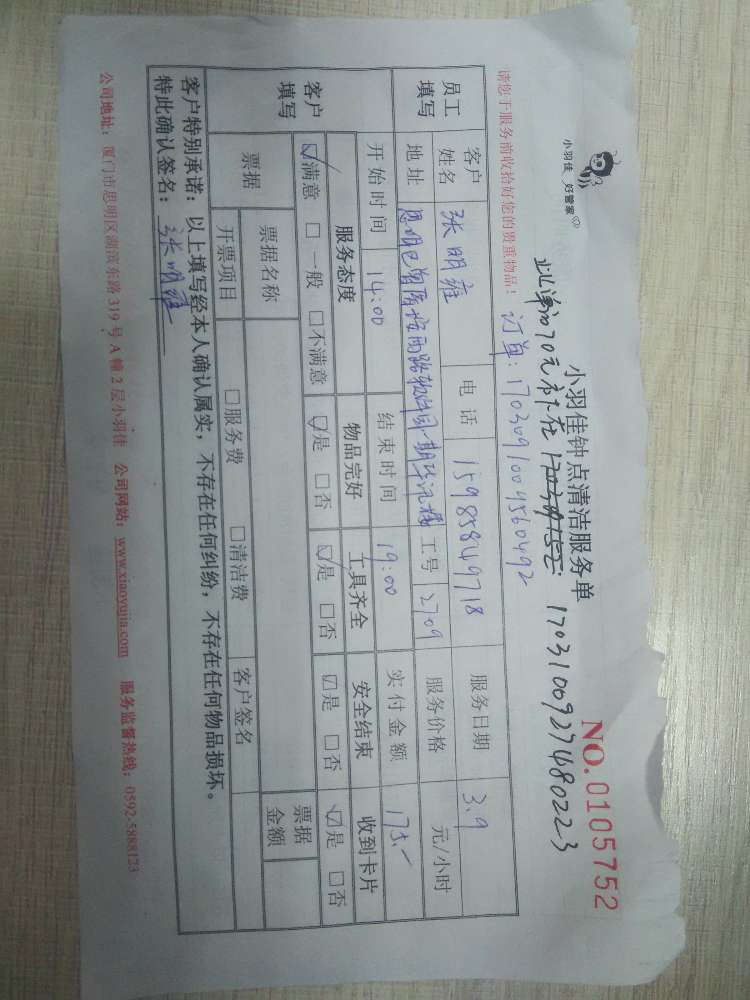 小羽佳 好管家
小羽佳钟点清洁服务单
NO.0105752
1703100927480223
订单:1703091009560492
请您于服务前收拾好您的贵重物品!
员工填写 客户姓名 张明雍 电话 15985849718 服务日期 3.9
地址 工号 2709 服务价格 元/小时
开始时间 14:00 结束时间 19:00 实付金额 175.-
客户填写 服务态度 物品完好 工具齐全 安全结束 收到卡片
☑满意 □一般 □不满意 ☑是 □否 ☑是 □否 ☑是 □否 ☑是 □否
票据 票据名称 票据金额
开票项目 □服务费 □清洁费 客户签名
客户特别承诺:以上填写经本人确认属实,不存在任何纠纷,不存在任何物品损坏。
特此确认签名:张明雍
公司地址:厦门市思明区湖滨东路319号A幢2层小羽佳 公司网站:www.xiaoyujia.com 服务监督热线:0592-5888123